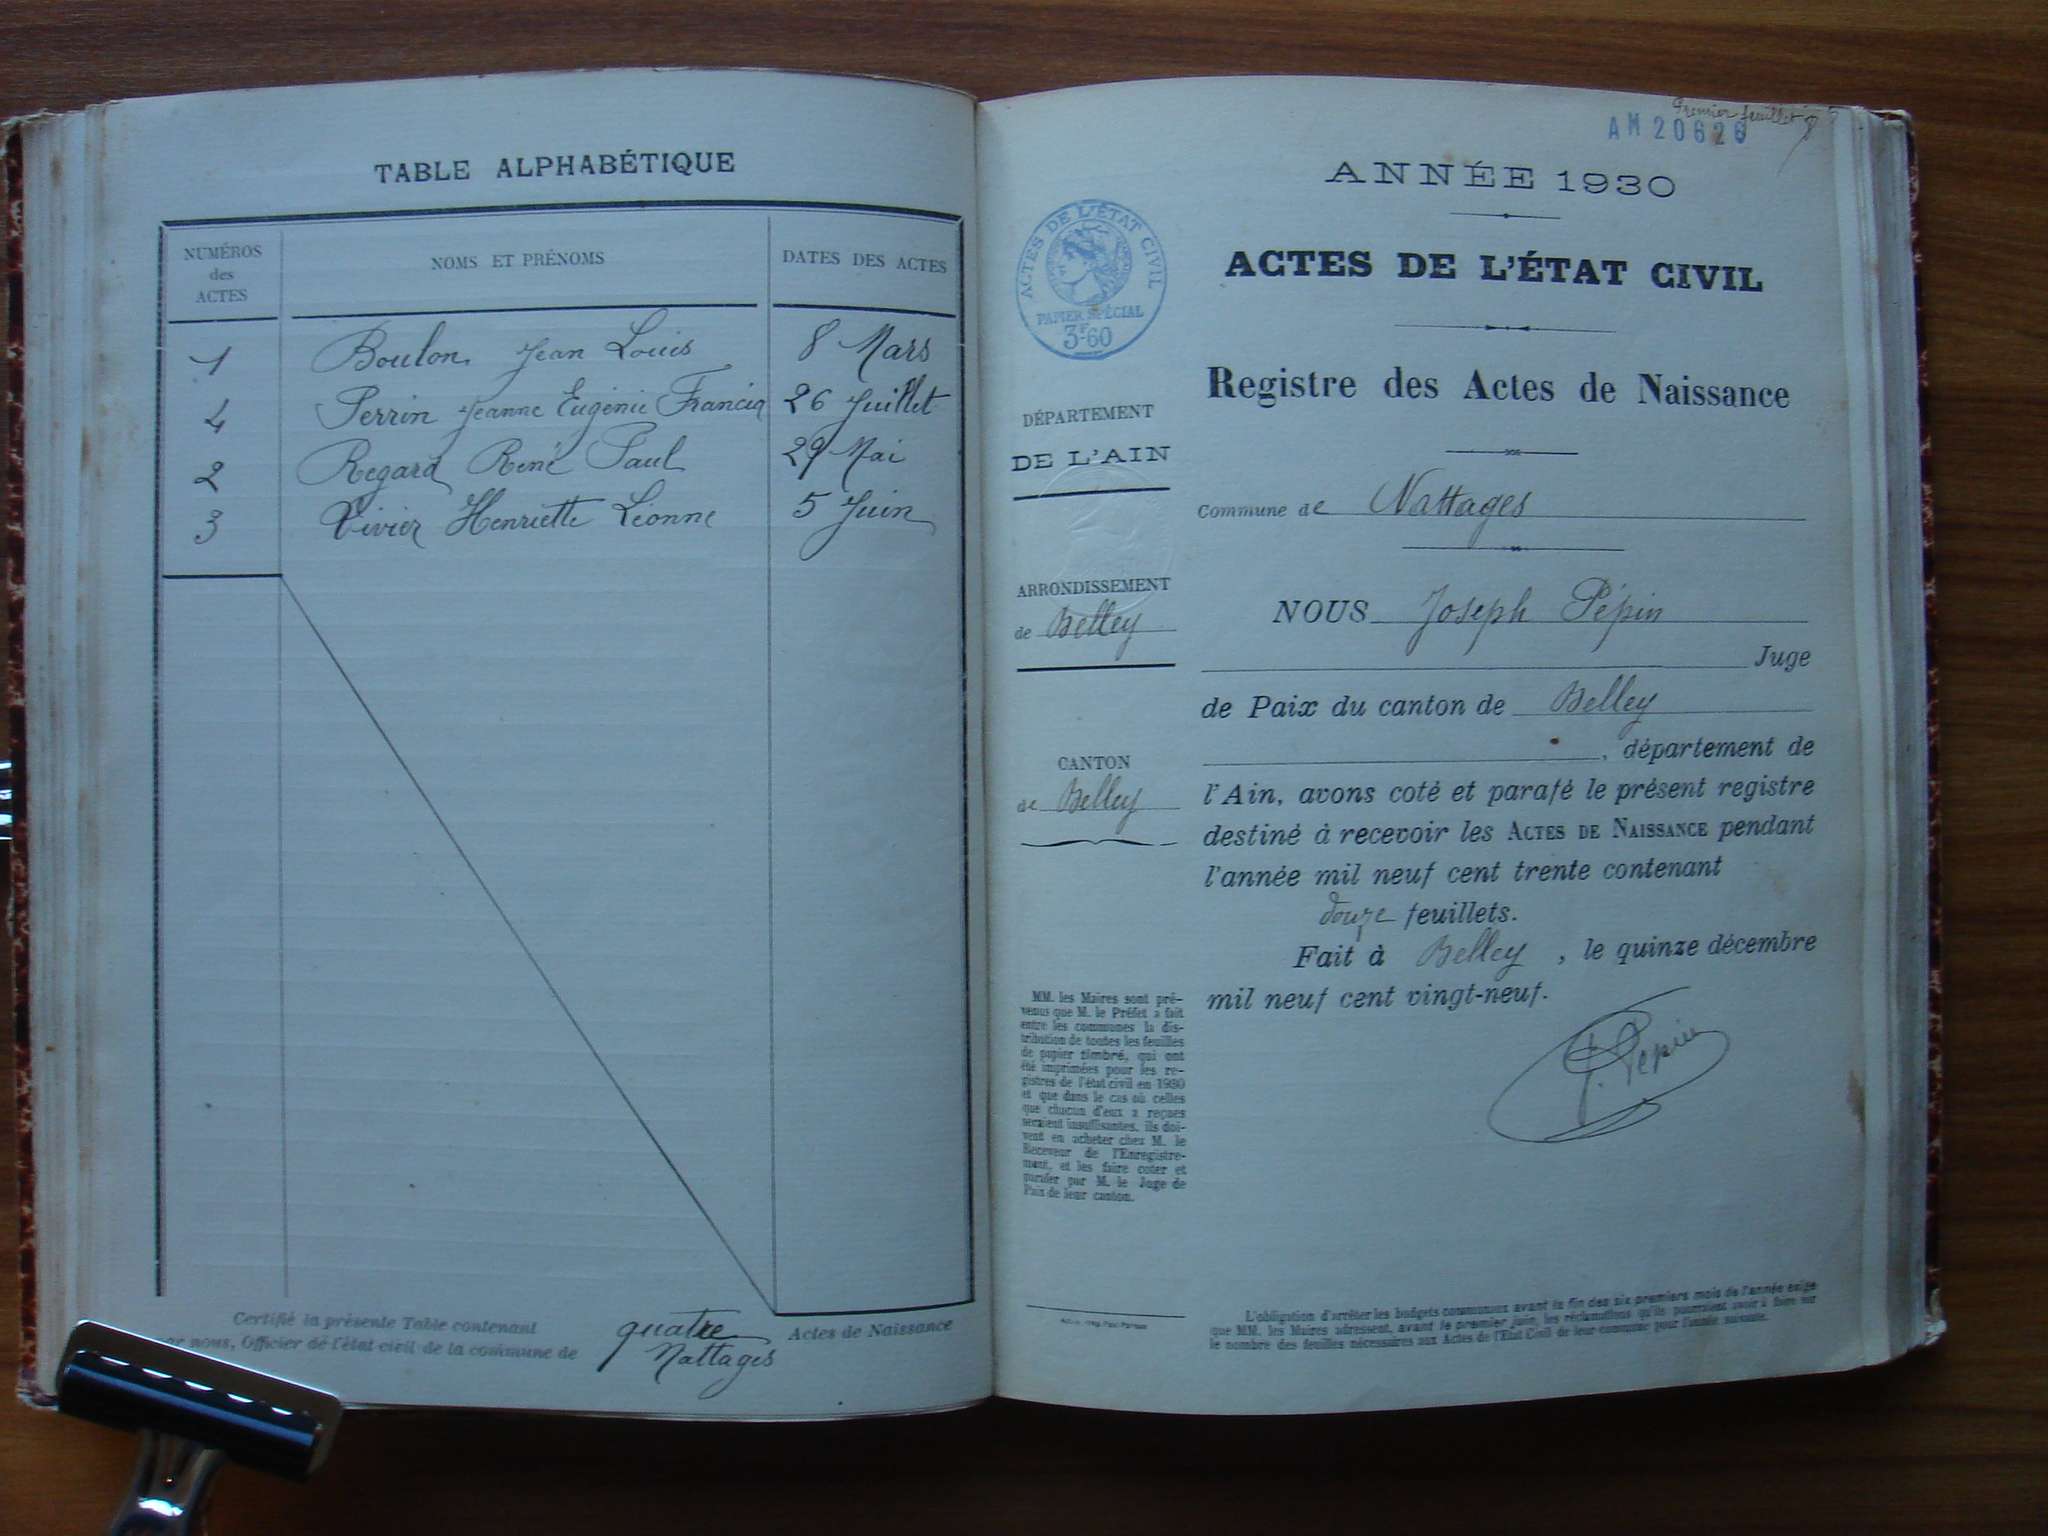 TABLE ALPHABÉTIQUE
NUMÉROS des ACTES
NOMS ET PRÉNOMS
DATES DES ACTES
1 Boulon Jean Louis 8 Mars
4 Perrin Jeanne Eugénie Francia 26 Juillet
2 Regard René Paul 29 Mai
3 Vivier Henriette Léonne 5 Juin
Certifié la présente Table contenant quatre Actes de Naissance
nous, Officier de l'état civil de la commune de Nattages
Premier feuillet
AM 20626
ANNÉE 1930
ACTES DE L'ÉTAT CIVIL
PAPIER SPÉCIAL
3F60
ACTES DE L'ÉTAT CIVIL
Registre des Actes de Naissance
DÉPARTEMENT
DE L'AIN
Commune de Nattages
ARRONDISSEMENT
de Belley
CANTON
de Belley
NOUS Joseph Pépin
Juge
de Paix du canton de Belley
, département de
l'Ain, avons coté et parafé le présent registre
destiné à recevoir les ACTES DE NAISSANCE pendant
l'année mil neuf cent trente contenant
douze feuillets.
Fait à Belley, le quinze décembre
mil neuf cent vingt-neuf.
J. Pepin
MM. les Maires sont pré-
venus que M. le Préfet a fait
entre les communes la dis-
tribution de toutes les feuilles
de papier timbré, qui ont
été imprimées pour les re-
gistres de l'état civil en 1930
et que dans le cas où celles
que chacun d'eux a reçues
seraient insuffisantes, ils doi-
vent en acheter chez M. le
Receveur de l'Enregistre-
ment, et les faire coter et
parafer par M. le Juge de
Paix de leur canton.
L'obligation d'arrêter les budgets communaux avant la fin des six premiers mois de l'année exige
que MM. les Maires adressent, avant le premier juin, les réclamations qu'ils pourraient avoir à faire sur
le nombre des feuilles nécessaires aux Actes de l'Etat Civil de leur commune pour l'année suivante.